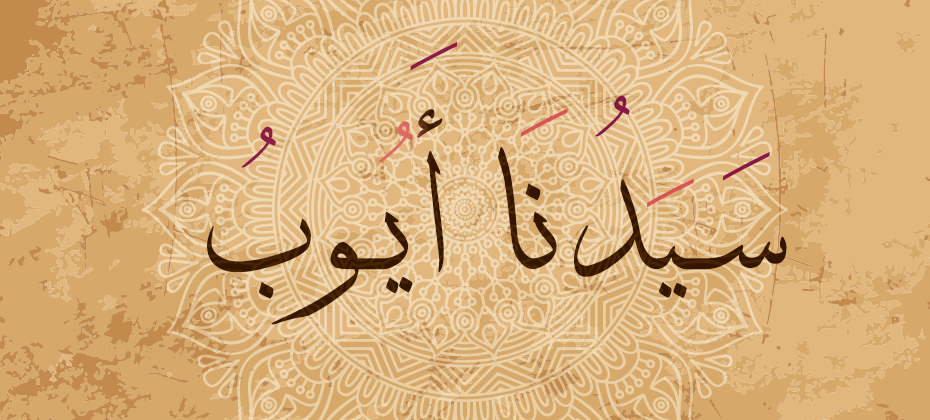 سَيَدُنَا أَيُوبُ